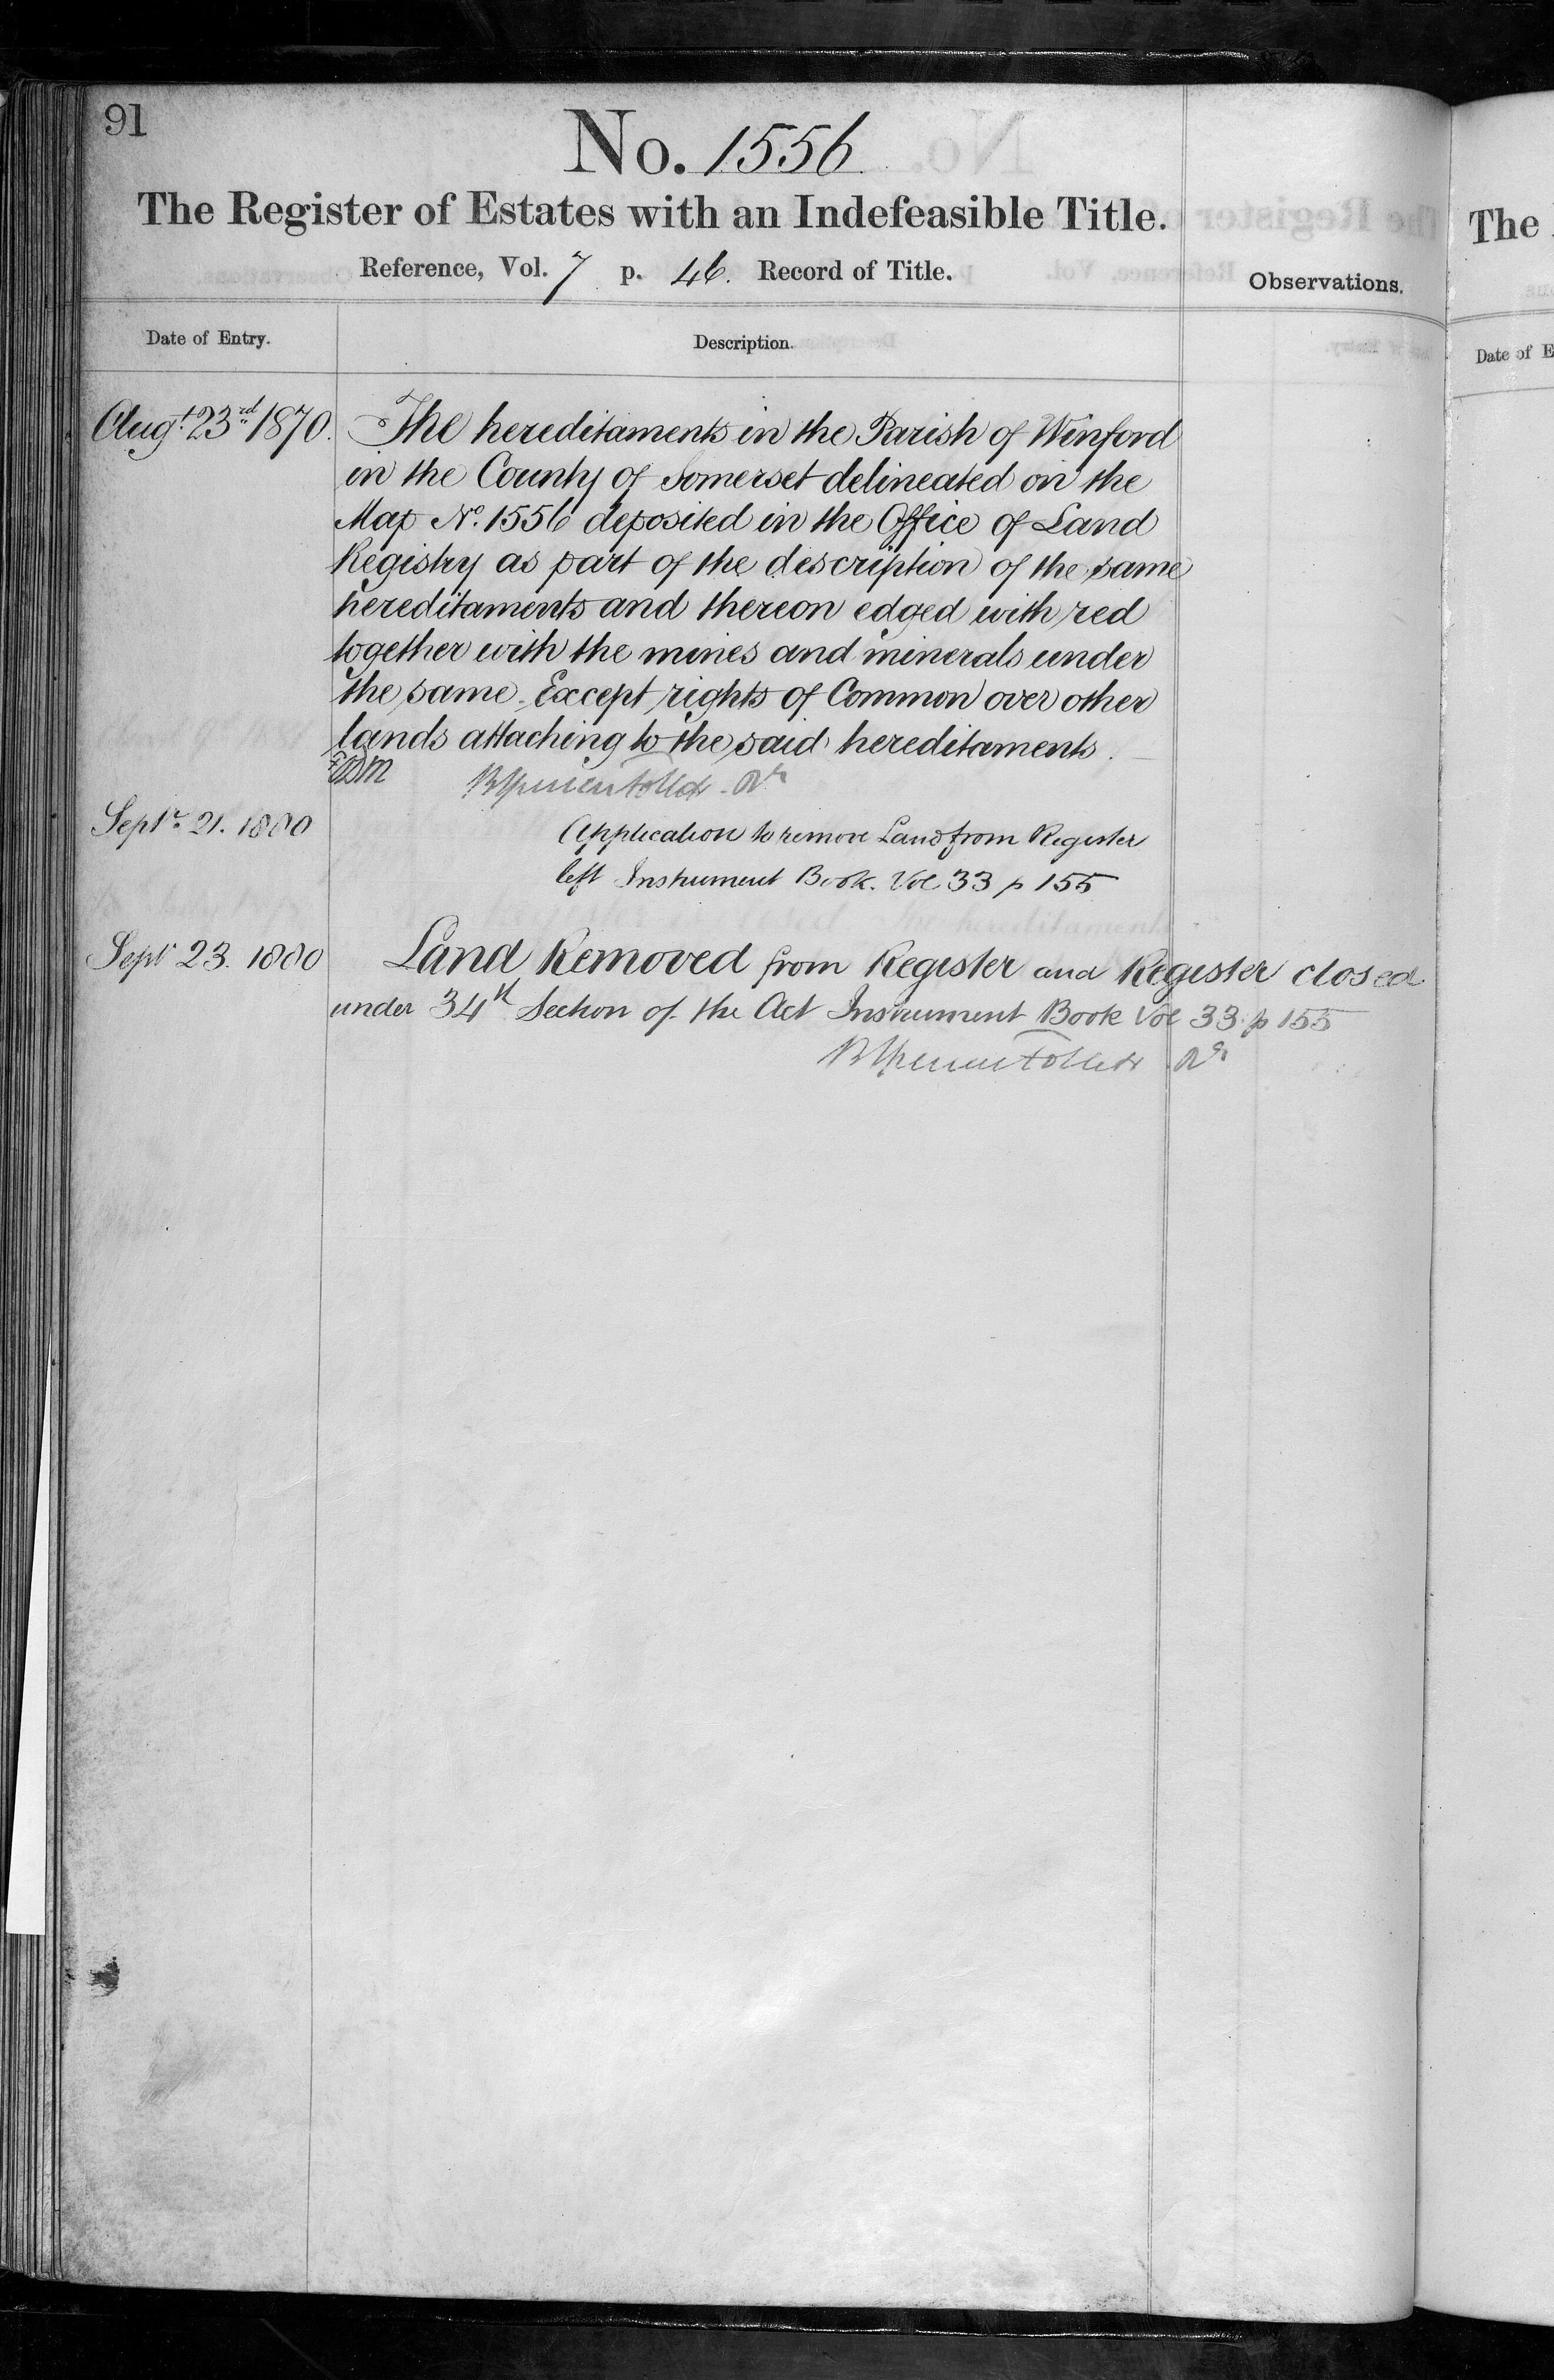 91
No. 1556
The Register of Estates with an Indefeasible Title.
Reference, Vol. 7 p. 46. Record of Title.
Observations.
Date of Entry.
Description.
Augt. 23rd 1870.
The hereditaments in the Parish of Winford
in the County of Somerset delineated on the
Map No. 1556 deposited in the Office of Land
Registry as part of the description of the same
hereditaments and thereon edged with red
together with the mines and minerals under
the same. Except rights of Common over other
lands attaching to the said hereditaments.
Septr. 21. 1880
Application to remove Land from Register
left Instrument Book. Vol 33 p 155
Septr 23. 1880
Land Removed from Register and Register closed
under 34th Section of the Act Instrument Book Vol 33 p 155
The
Date of E